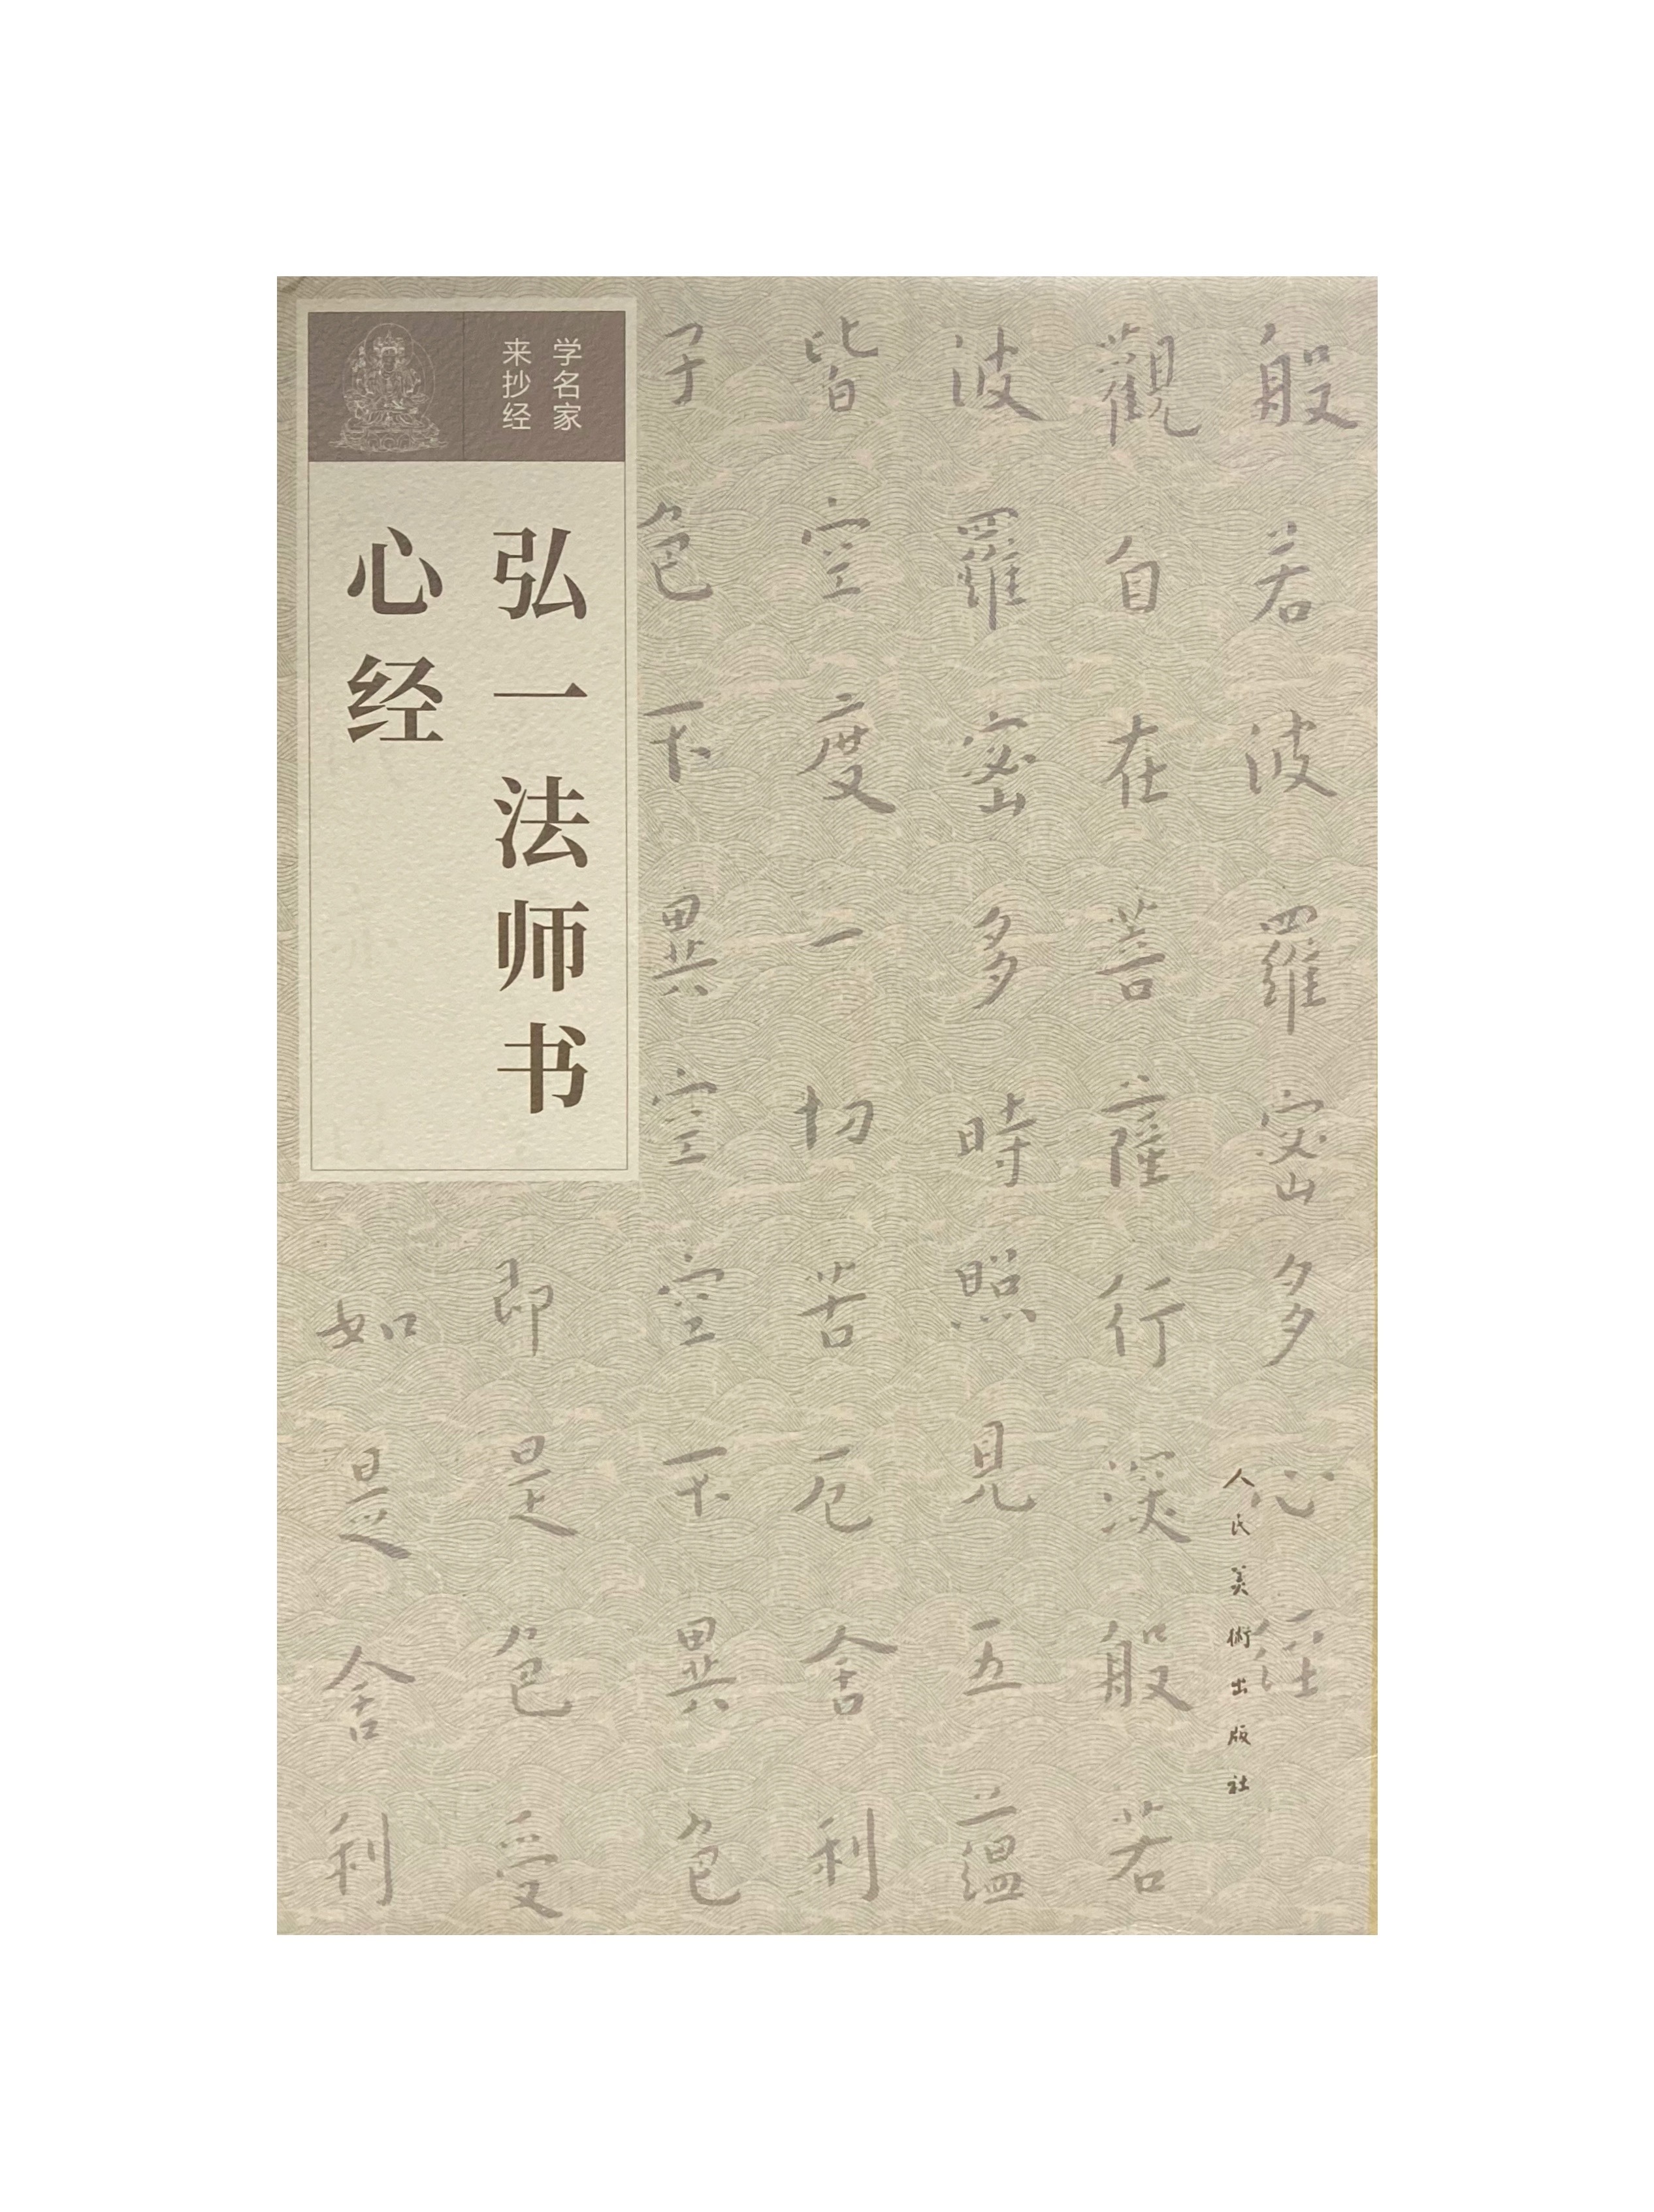 学名家
来抄经
弘一法师书
心经
般若波羅蜜多心經
觀自在菩薩行深般若
波羅蜜多時照見五蘊
皆空度一切苦厄舍利
子色不異空空不異色
即是色受
如是舍利
人民美術出版社